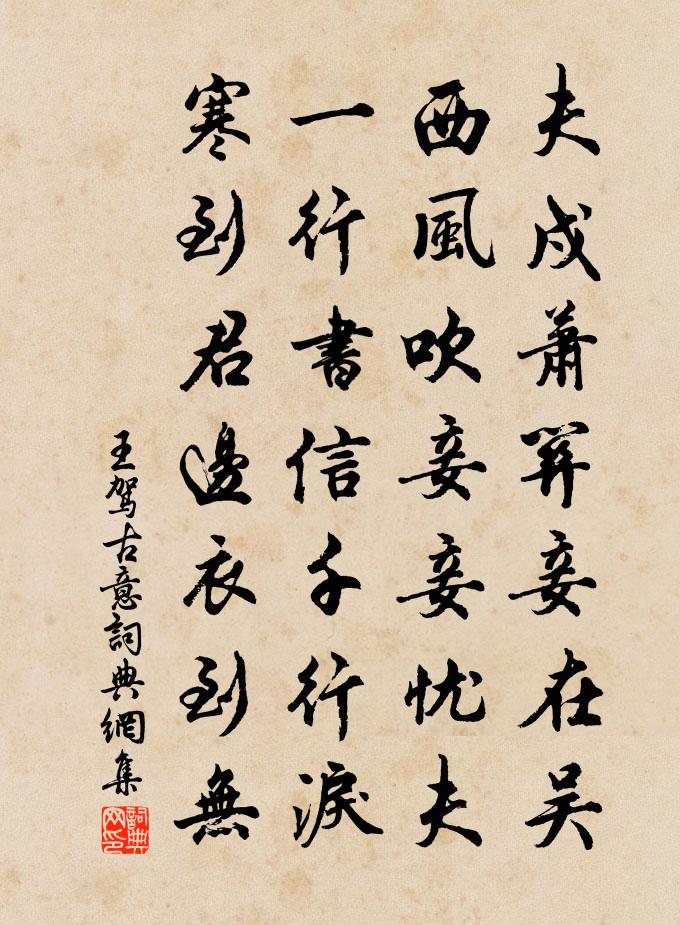 夫戍蕭關妾在吴
西風吹妾妾忧夫
一行書信千行淚
寒到君邊衣到無
王駕古意詞典網集
詞典網印